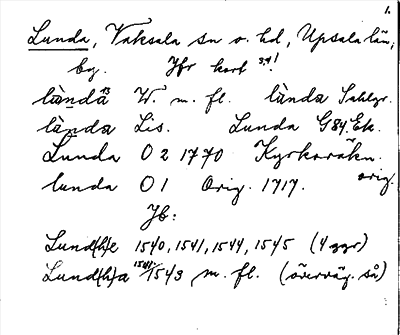 1.
Lunda, Vaksala sn o. hd, Upsala län,
by. Jfr kart s. 4!
lànda W. m. fl. lànda Sahlgr.
lànda Lis. Lunda G 89. Ek.
Lunda O 2 1770 Kyrkoräkn.
lunda O 1 Orig. 1717. orig.
Jb:
Lund(h)e 1540, 1541, 1544, 1545 (4 ggr)
Lund(h)a 1541/1543 m. fl. (överväg. så)